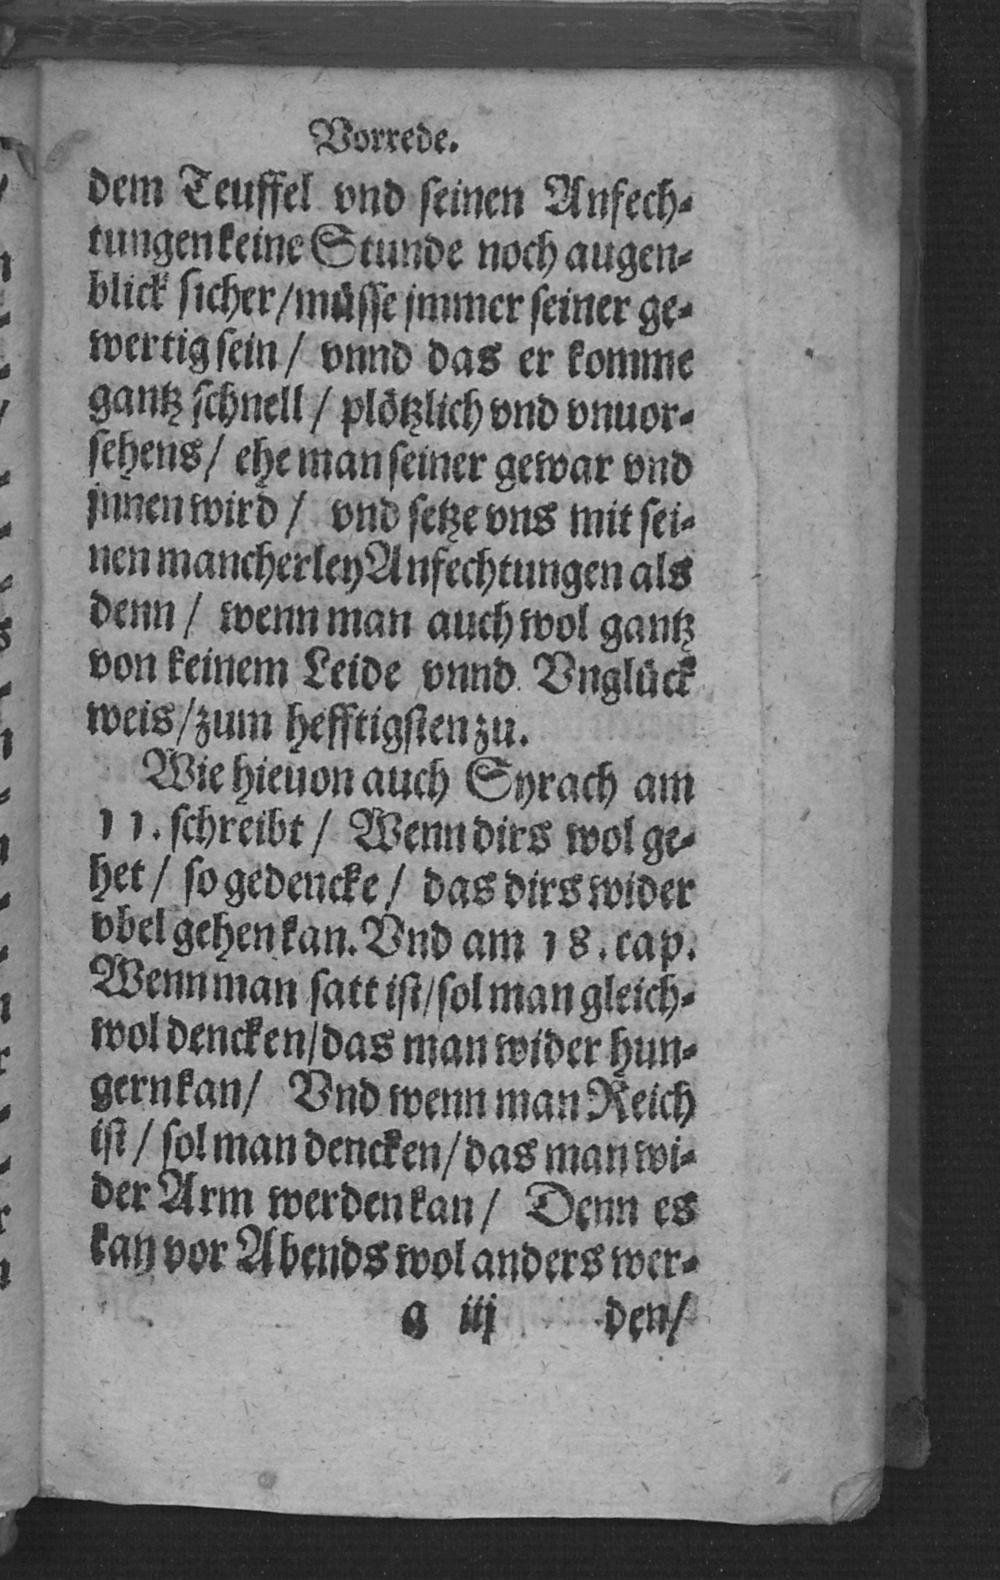 Vorrede.
dem Teuffel vnd seinen Anfech-
tungen keine Stunde noch augen-
blick sicher / müsse jmmer seiner ge-
wertig sein / vnnd das er komme
gantz schnell / plötzlich vnd vnuor-
sehens / ehe man seiner gewar vnd
jnnen wird / vnd setze vns mit sei-
nen mancherley Anfechtungen als
denn / wenn man auch wol gantz
von keinem Leide vnnd Vnglück
weis / zum hefftigsten zu.
Wie hieuon auch Syrach am
11. schreibt / Wenn dirs wol ge-
het / so gedencke / das dirs wider
vbel gehen kan. Vnd am 18. cap.
Wenn man satt ist / sol man gleich-
wol dencken / das man wider hun-
gern kan / Vnd wenn man Reich
ist / sol man dencken / das man wi-
der Arm werden kan / Denn es
kan vor Abends wol anders wer-
a iij den /